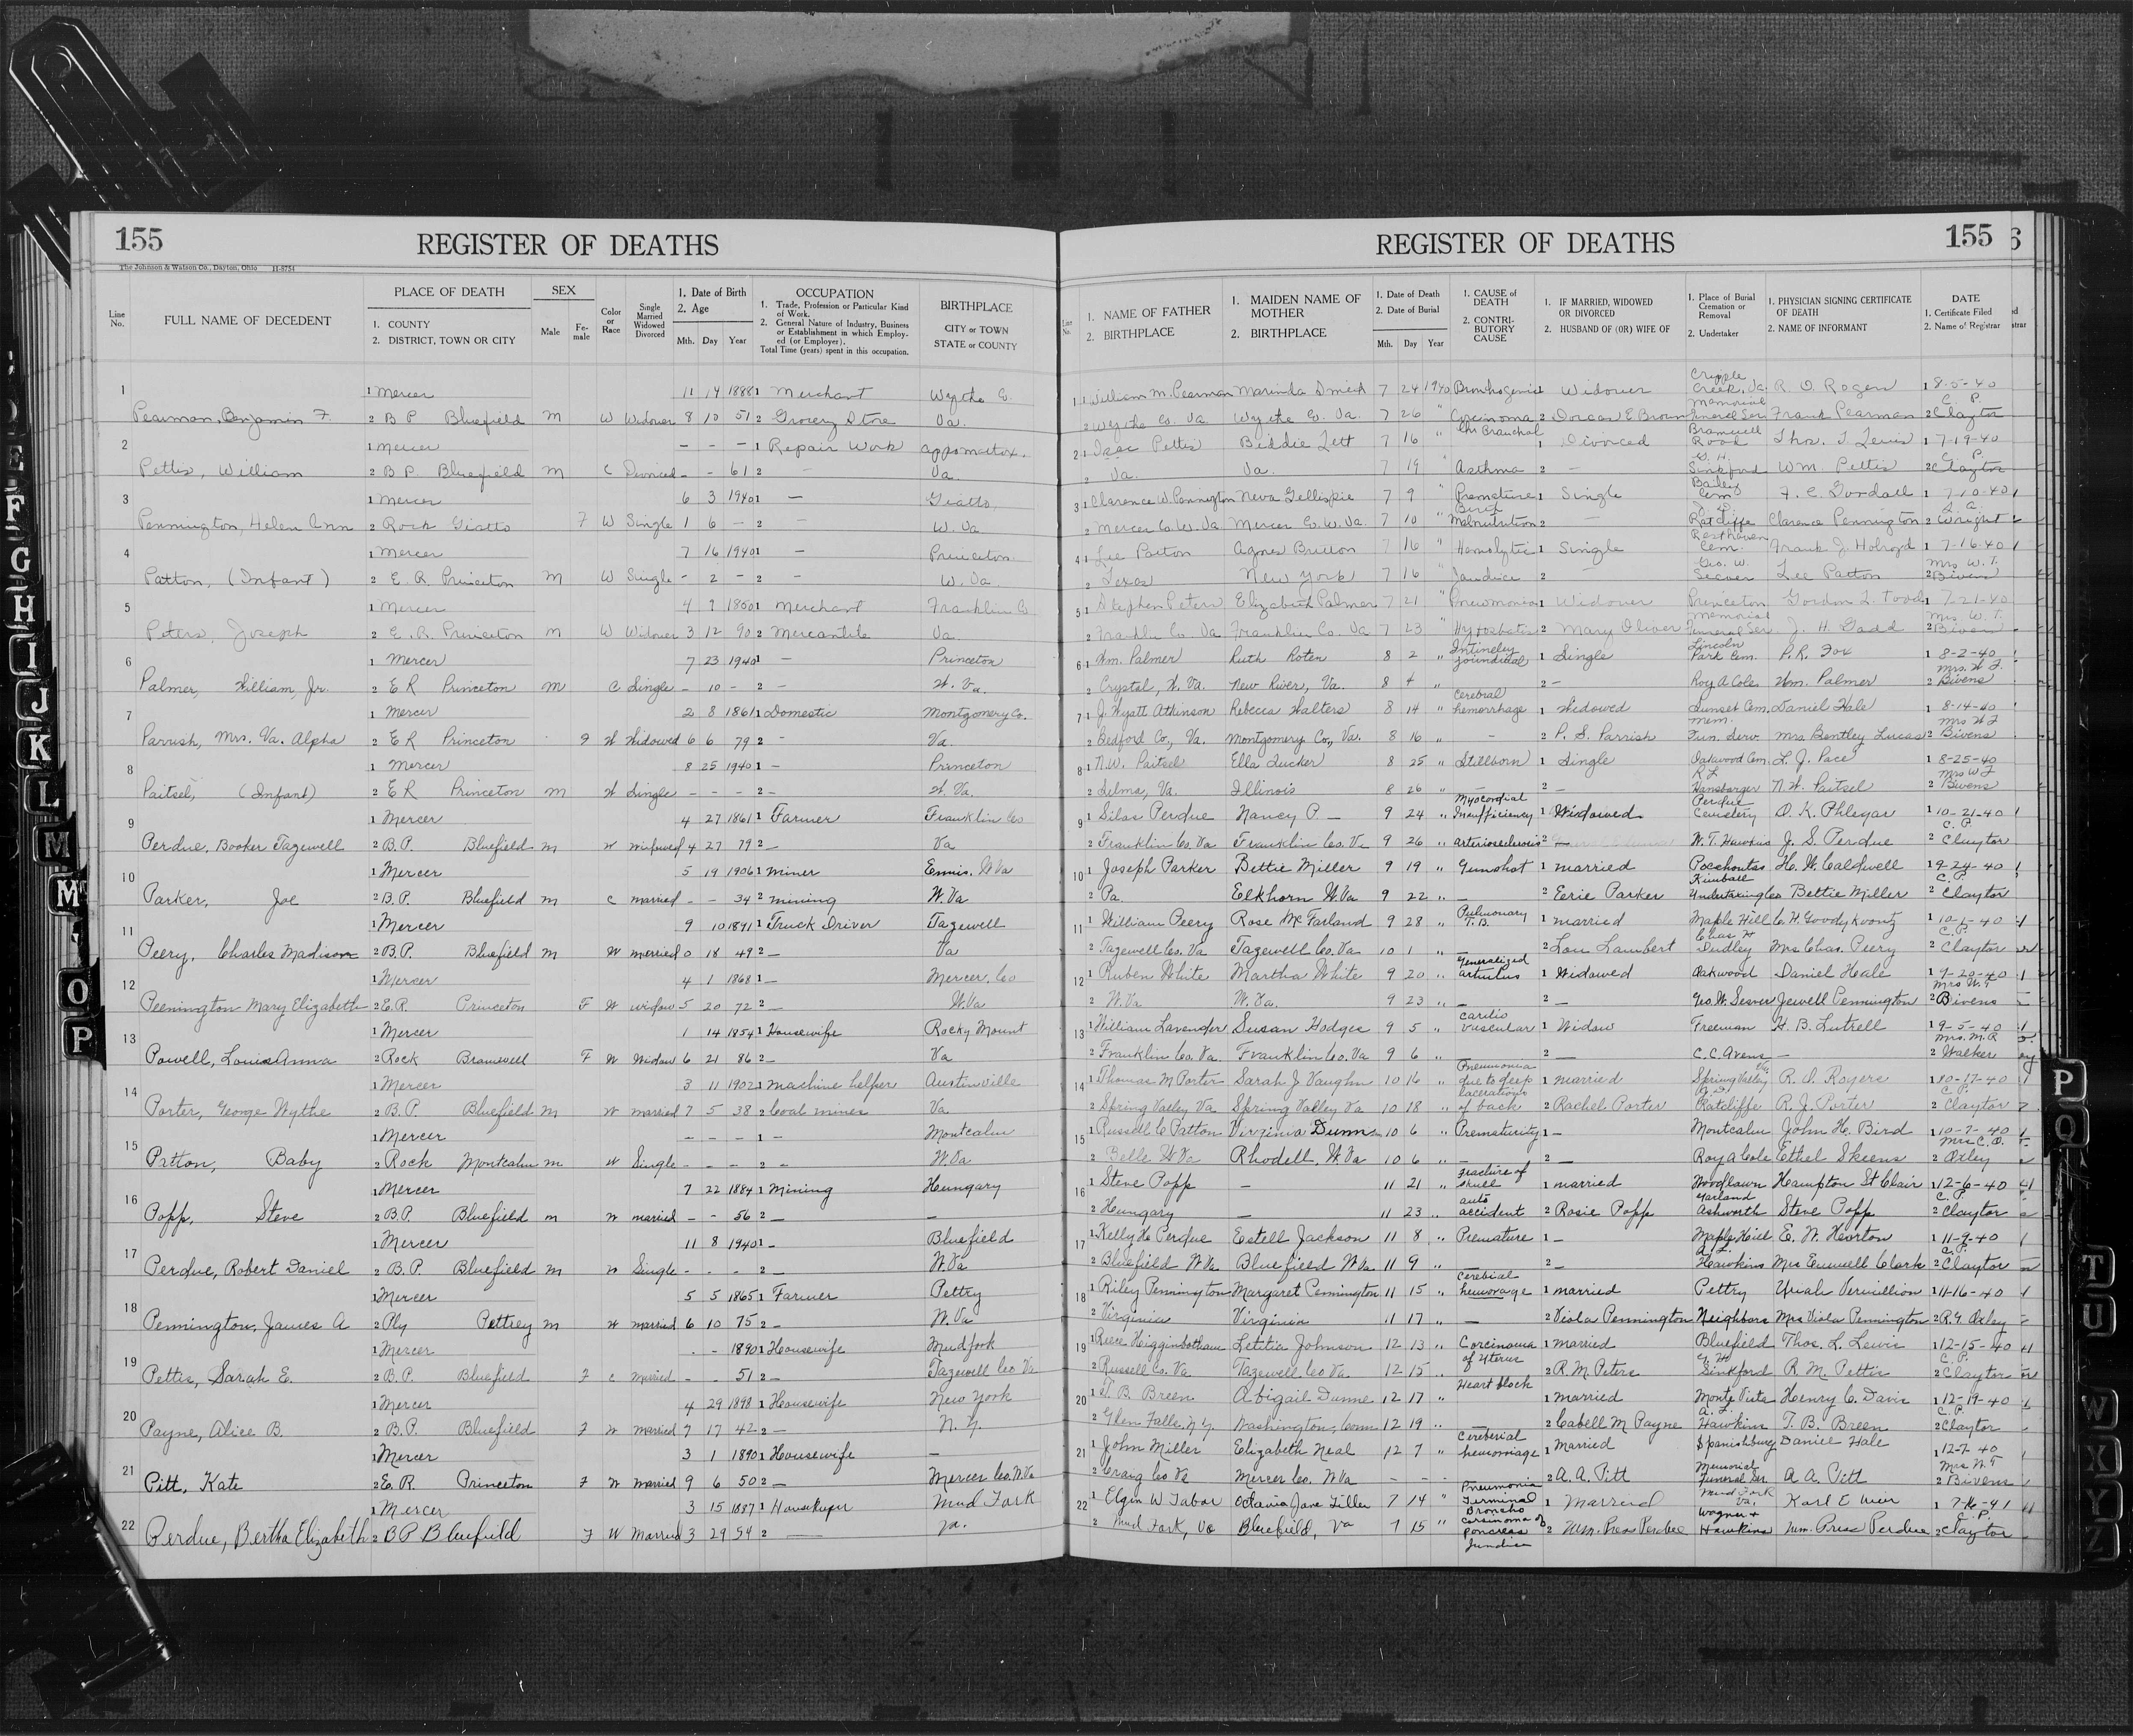 155 REGISTER OF DEATHS
The Johnson & Watson Co., Dayton, Ohio H-8754
Line No. FULL NAME OF DECEDENT PLACE OF DEATH 1. COUNTY 2. DISTRICT, TOWN OR CITY SEX Male Fe-male Color or Race Single Married Widowed Divorced 1. Date of Birth 2. Age Mth. Day Year OCCUPATION 1. Trade, Profession or Particular Kind of Work. 2. General Nature of Industry, Business or Establishment in which Employ-ed (or Employer). Total Time (years) spent in this occupation. BIRTHPLACE CITY or TOWN STATE or COUNTY
1 1 Mercer 11 14 1888 1 Merchant Wythe Co.
Pearman, Benjamin F. 2 B P Bluefield M W Widower 8 10 51 2 Grocery Store Va.
2 1 Mercer - - - 1 Repair Work Appomattox.
Pettis, William 2 B P. Bluefield M C Divorced - - 61 2 - Va.
3 1 Mercer 6 3 1940 1 - Giatto,
Pennington, Helen Ann 2 Rock Giatto F W Single 1 6 - 2 - W. Va
4 1 Mercer 7 16 1940 1 - Princeton
Patton, (Infant) 2 E. R. Princeton M W Single - 2 - 2 - W. Va.
5 1 Mercer 4 9 1850 1 Merchant Franklin Co
Peters, Joseph 2 E. R. Princeton M W Widower 3 12 90 2 Mercantile Va.
6 1 Mercer 7 23 1940 1 - Princeton
Palmer, William, Jr. 2 E R Princeton M C Single - 10 - 2 - W. Va.
7 1 Mercer 2 8 1861 1 Domestic Montgomery Co.
Parrish, Mrs. Va. Alpha 2 E R Princeton F W Widowed 6 6 79 2 - Va.
8 1 Mercer 8 25 1940 1 - Princeton
Paitsel, (Infant) 2 E R Princeton M W Single - - - 2 - W. Va.
9 1 Mercer 4 27 1861 1 Farmer Franklin Co
Perdue, Booker Tazewell 2 B.P. Bluefield M W widowed 4 27 79 2 - Va
10 1 Mercer 5 19 1906 1 miner Ennis, W Va
Parker, Joe 2 B.P. Bluefield M C married - - 34 2 mining W. Va
11 1 Mercer 9 10 1891 1 Truck Driver Tazewell
Peery, Charles Madison 2 B.P. Bluefield M W married 0 18 49 2 - Va
12 1 Mercer 4 1 1868 1 - Mercer. Co
Pennington Mary Elizabeth 2 E.R. Princeton F W widow 5 20 72 2 - W.Va
13 1 Mercer 1 14 1854 1 Housewife Rocky Mount
Powell, Louis Anna 2 Rock Bramwell F W Widow 6 21 86 2 - Va
14 1 Mercer 3 11 1902 1 machine helper Austinville
Porter, George Wythe 2 B.P. Bluefield M W married 7 5 38 2 Coal mines Va.
15 1 Mercer - - - 1 - Montcalm
Patton, Baby 2 Rock Montcalm M W Single - - - 2 - W.Va
16 1 Mercer 7 22 1884 1 Mining Hungary
Popp, Steve 2 B.P. Bluefield M W married - - 56 2 - -
17 1 Mercer 11 8 1940 1 - Bluefield
Perdue, Robert Daniel 2 B.P. Bluefield M W Single - - - 2 - W.Va
18 1 Mercer 5 5 1865 1 Farmer Pettry
Pennington, James A 2 Ply Pettrey M W married 6 10 75 2 - W.Va
19 1 Mercer - - 1890 1 Housewife Mudfork
Pettis, Sarah E. 2 B.P. Bluefield F C Married - - 51 2 - Tazewell Co Va
20 1 Mercer 4 29 1898 1 Housewife New York
Payne, Alice B. 2 B.P. Bluefield F W Married 7 17 42 2 - N. Y.
21 1 Mercer 3 1 1890 1 Housewife -
Pitt, Kate 2 E. R. Princeton F W Married 9 6 50 2 - Mercer Co. W.Va
22 1 Mercer 3 15 1887 1 Housekeeper Mud Fork
Perdue, Bertha Elizabeth 2 B P Bluefield F W Married 3 29 54 2 - Va.
REGISTER OF DEATHS 155
1. NAME OF FATHER 2. BIRTHPLACE 1. MAIDEN NAME OF MOTHER 2. BIRTHPLACE 1. Date of Death 2. Date of Burial Mth. Day Year 1. CAUSE of DEATH 2. CONTRI-BUTORY CAUSE 1. IF MARRIED, WIDOWED OR DIVORCED 2. HUSBAND OF (OR) WIFE OF 1. Place of Burial Cremation or Removal 2. Undertaker 1. PHYSICIAN SIGNING CERTIFICATE OF DEATH 2. NAME OF INFORMANT DATE 1. Certificate Filed 2. Name of Registrar
1 1 William M. Pearman Marinda 7 24 1940 Bronchogenic 1 Widower Cripple Creek, Va. R. O. Rogers 1 8-5-40
2 Wythe Co. Va. Wythe Co. Va. 7 26 " Carcinoma 2 Dorcas E Brown Memorial Funeral Ser. Frank Pearman 2 C. P. Clayton
2 1 Isaac Pettis Biddie Lett 7 16 " Chr Bronchial 1 Divorced Bramwell Road Thos. L. Lewis 1 7-19-40
2 Va. Va. 7 19 " Asthma 2 - G. H. Sinkford Wm. Pettis 2 C. P. Clayton
3 1 Clarence W. Pennington Neva Gillispie 7 9 " Premature Birth 1 Single Bailey Cem F. C. Goodall 1 7-10-40
2 Mercer Co. W. Va. Mercer Co. W. Va. 7 10 " Malnutrition 2 - Ratcliffe Clarence Pennington 2 Wright
4 1 Lee Patton Agnes Button 7 16 " Hemolytic 1 Single Resthaven Cem. Frank J. Holroyd 1 7-16-40
2 Texas New York 7 16 " Jaundice 2 Geo. W. Seaver Lee Patton 2 Mrs W. T. Bivens
5 1 Stephen Peters Elizabeth Palmer 7 21 " Pneumonia 1 Widower Princeton Gordon L. Todd 1 7-21-40
2 Franklin Co. Va Franklin Co. Va 7 23 " Hypostatic 2 Mary Oliver Memorial Funeral Ser J. H. Gadd 2 Mrs W. T. Bivens
6 1 Wm. Palmer Ruth Roten 8 2 " 1 Single Lincoln Park Cem. P. R. Fox 1 8-2-40
2 Crystal, W. Va. New River, Va. 8 4 " 2 - Roy A Cole Wm. Palmer 2 Mrs. W T. Bivens
7 1 J. Wyatt Atkinson Rebecca Walters 8 14 " Cerebral hemorrhage 1 Widowed Sunset Cem. Daniel Hale 1 8-14-40
2 Bedford Co., Va. Montgomery Co., Va. 8 16 " - 2 P. S. Parrish Mem. Fun. Serv. Mrs Bentley Lucas 2 Mrs W T Bivens
8 1 N. W. Paitsel Ella Tucker 8 25 " Stillborn 1 Single Oakwood Cem. L. J. Pace 1 8-25-40
2 Selma, Va. Illinois 8 26 " - 2 - R L Hansbarger N. W. Paitsel 2 Mrs W T Bivens
9 1 Silas Perdue Nancy P. - 9 24 " Myocardial Insufficiency 1 Widowed Perdue Cemetery O. K. Phlegar 1 10-21-40
2 Franklin Co. Va Franklin Co. Va 9 26 " arteriosclerosis 2 - W. T. Hawkins J. S. Perdue 2 C. P. Clayton
10 1 Joseph Parker Bettie Miller 9 19 " Gunshot 1 married Pocahontas H. W. Caldwell 1 9-24-40
2 Pa. Elkhorn W.Va 9 22 " - 2 Erie Parker Kimball Undertaking Co Bettie Miller 2 C. P. Clayton
11 1 William Peery Rose McFarland 9 28 " Pulmonary T.B. 1 married Maple Hill C. H. Goodykoontz 1 10-1-40
2 Tazewell Co. Va Tazewell Co. Va 10 1 " - 2 Lou Lambert Chas. H Dudley Mrs Chas. Peery 2 C. P. Clayton
12 1 Ruben White Martha White 9 20 " Generalized 1 Widowed Oakwood Daniel Hale 1 9-20-40
2 W. Va W. Va. 9 23 " - 2 - Geo. W. Seaver Jewell Pennington 2 Mrs W. T. Bivens
13 1 William Lavender Susan Hodges 9 5 " cardio vascular 1 Widow Freeman H. B. Lutrell 1 9-5-40
2 Franklin Co. Va. Franklin Co. Va 9 6 " 2 - C. C. Avens - 2 Mrs. M. R Walker
14 1 Thomas M Porter Sarah J Vaughn 10 16 " Pneumonia due to deep 1 married Spring Valley Va R. O. Rogers 1 10-17-40
2 Spring Valley Va Spring Valley Va 10 18 " lacerations of back 2 Rachel Porter Ratcliffe R. J. Porter 2 C. P. Clayton
15 1 Russell C Patton Virginia Dunn 10 6 " Prematurity 1 - Montcalm John H. Bird 1 10-7-40
2 Belle W Va Rhodell, W. Va 10 6 " - 2 - Roy A Cole Ethel Skeens 2 Mrs C. O. Oxley
16 1 Steve Popp - 11 21 " fracture of skull 1 married Woodlawn Hampton St Clair 1 12-6-40
2 Hungary - 11 23 " auto accident 2 Rosie Popp Garland Ashworth Steve Popp 2 C. P. Clayton
17 1 Kelly H Perdue Estell Jackson 11 8 " Premature 1 - Maple Hill E. W. Horton 1 11-9-40
2 Bluefield W.Va Bluefield W.Va 11 9 " 2 - A. L. Hawkins Mrs Emmell Clark 2 C. P. Clayton
18 1 Riley Pennington Margaret Pennington 11 15 " Cerebral hemorage 1 married Pettry Uriah Vermillion 1 11-16-40
2 Virginia Virginia 11 17 " - 2 Viola Pennington Neighbors Mrs Viola Pennington 2 R. G. Oxley
19 1 Reece Higginbotham Letitia Johnson 12 13 " Carcinoma 1 married Bluefield Thos. L. Lewis 1 12-15-40
2 Russell Co. Va Tazewell Co Va 12 15 " of Uterus 2 R. M. Peters G. H. Sinkford R. M. Pettis 2 C. P. Clayton
20 1 T. B. Breen Abigail Dunne 12 17 " Heart block 1 married Monte Vista Henry C. Davis 1 12-19-40
2 Glen Falls. N. Y. Washington, Conn 12 19 " - 2 Cabell M Payne A. L. Hawkins T. B. Breen 2 C. P. Clayton
21 1 John Miller Elizabeth Neal 12 7 " Cereberial hemorriage 1 Married Spanishburg Daniel Hale 1 12-7-40
2 Craig Co Va Mercer Co. W Va - - - 2 A. A. Pitt Memorial Funeral Ser. A A. Pitt 2 Mrs W. T Bivens
22 1 Elgin W Tabor Octavia Jane Tiller 7 14 " Pneumonia Terminal Broncho 1 Married Mud Fork Va. Karl E Weir 1 7-16-41
2 Mud Fork, Va Bluefield, Va 7 15 " carcinoma of pancreas Jundice 2 Wm. Press Perdue Wagner + Hawkins Wm. Press Perdue 2 C. P. Clayton
E F G H I J K L M M O P
P Q T U W X Y Z